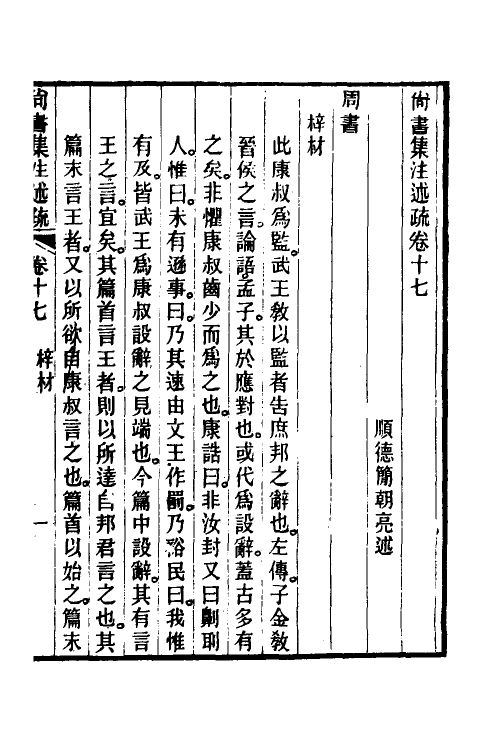 尙書集注述疏卷十七
順德簡朝亮述
周書
梓材
此康叔爲監。武王敎以監者告庶邦之辭也。左傳子金敎
晉侯之言。論語孟子。其於應對也。或代爲設辭。蓋古多有
之矣。非懼康叔齒少而爲之也。康誥曰。非汝封又曰劓刵
人。惟曰。未有遜事。曰。乃其速由文王作罰。乃裕民曰。我惟
有及。皆武王爲康叔設辭之見端也。今篇中設辭。其有言
王之言。宜矣。其篇首言王者。則以所達自邦君言之也。其
篇末言王者。又以所欲自康叔言之也。篇首以始之。篇末
尙書集注述疏 卷十七 梓材 一